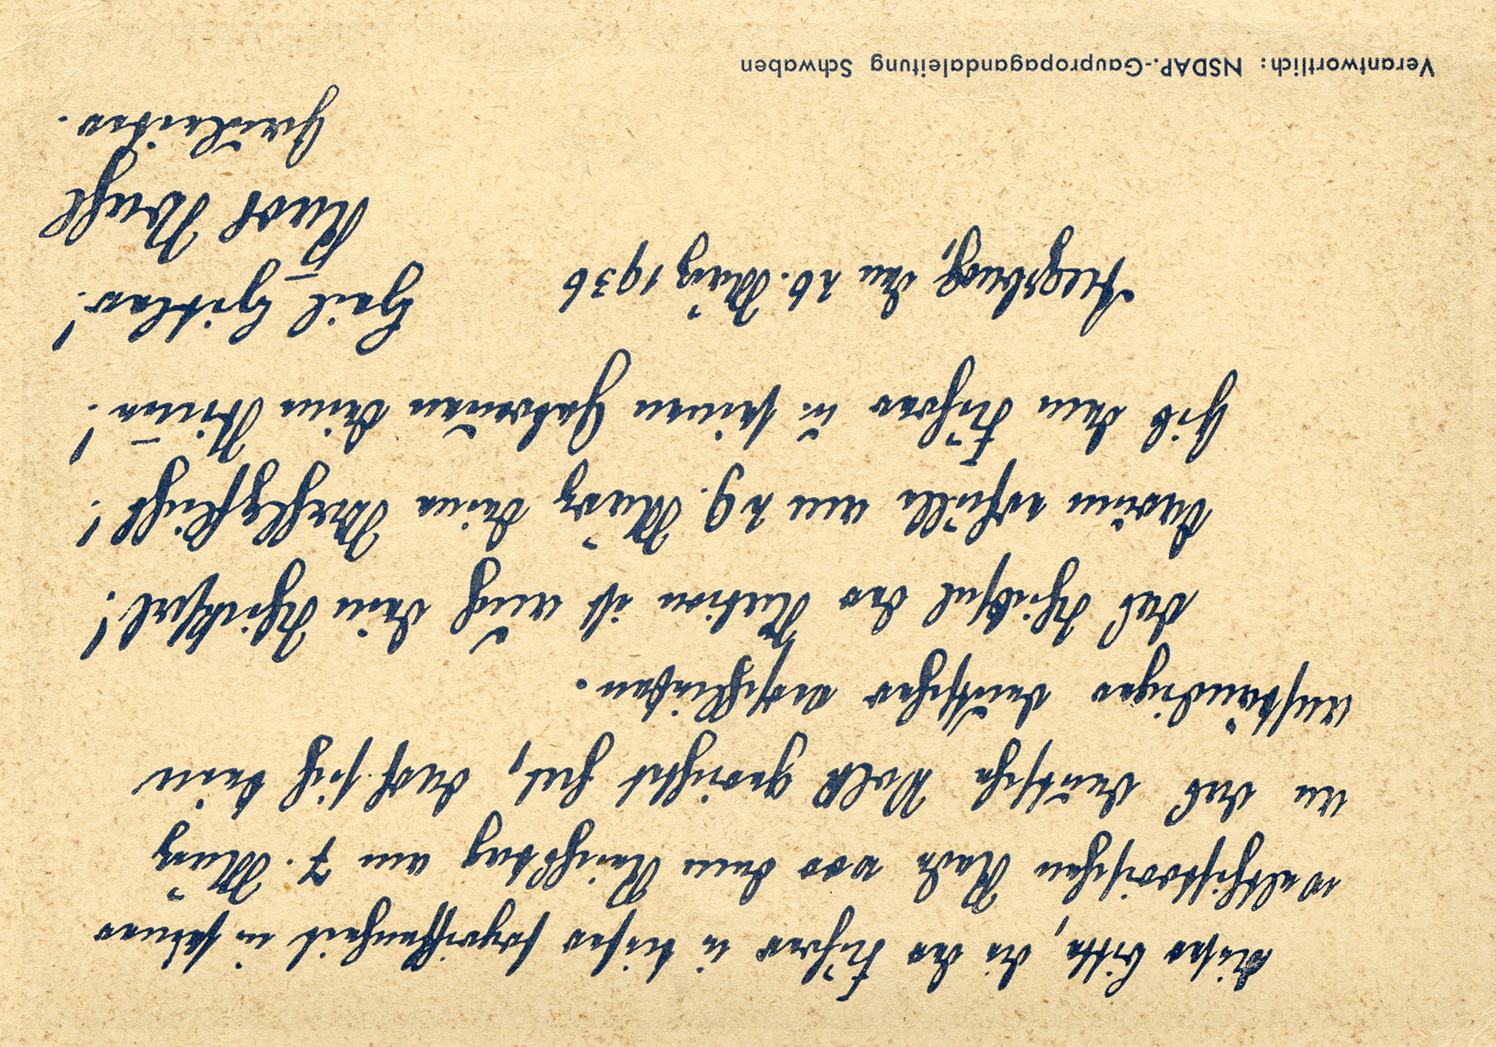 Dieser bitte, die der Führer in tiefer Ergriffenheit in seiner
welthistorischen Rede vor dem Reichstag am 7. März
an das deutsche Volk gerichtet hat, darf sich kein
anständiger deutscher verschließen.
Das Schicksal der Nation ist auch dein Schicksal!
Darum erfülle am 29. März deine Wahlpflicht!
Gib dem Führer u. seinen Getreuen deine Stim̄e!
Augsburg, den 26. März 1936 Heil Hitler!
Karl Wahl
Gauleiter.
Verantwortlich: NSDAP.-Gaupropagandaleitung Schwaben